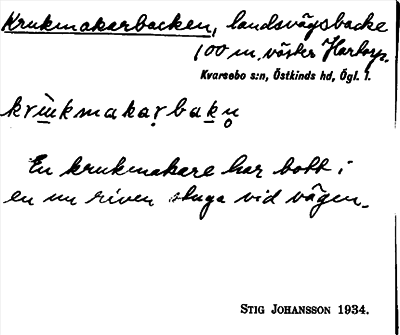 Krukmakarbacken, landsvägsbacke
100 m. väster Hartorp.
Kvarsebo s:n, Östkinds hd, Ögl. 1.
En krukmakare har bott i
en nu riven stuga vid vägen.
STIG JOHANSSON 1934.